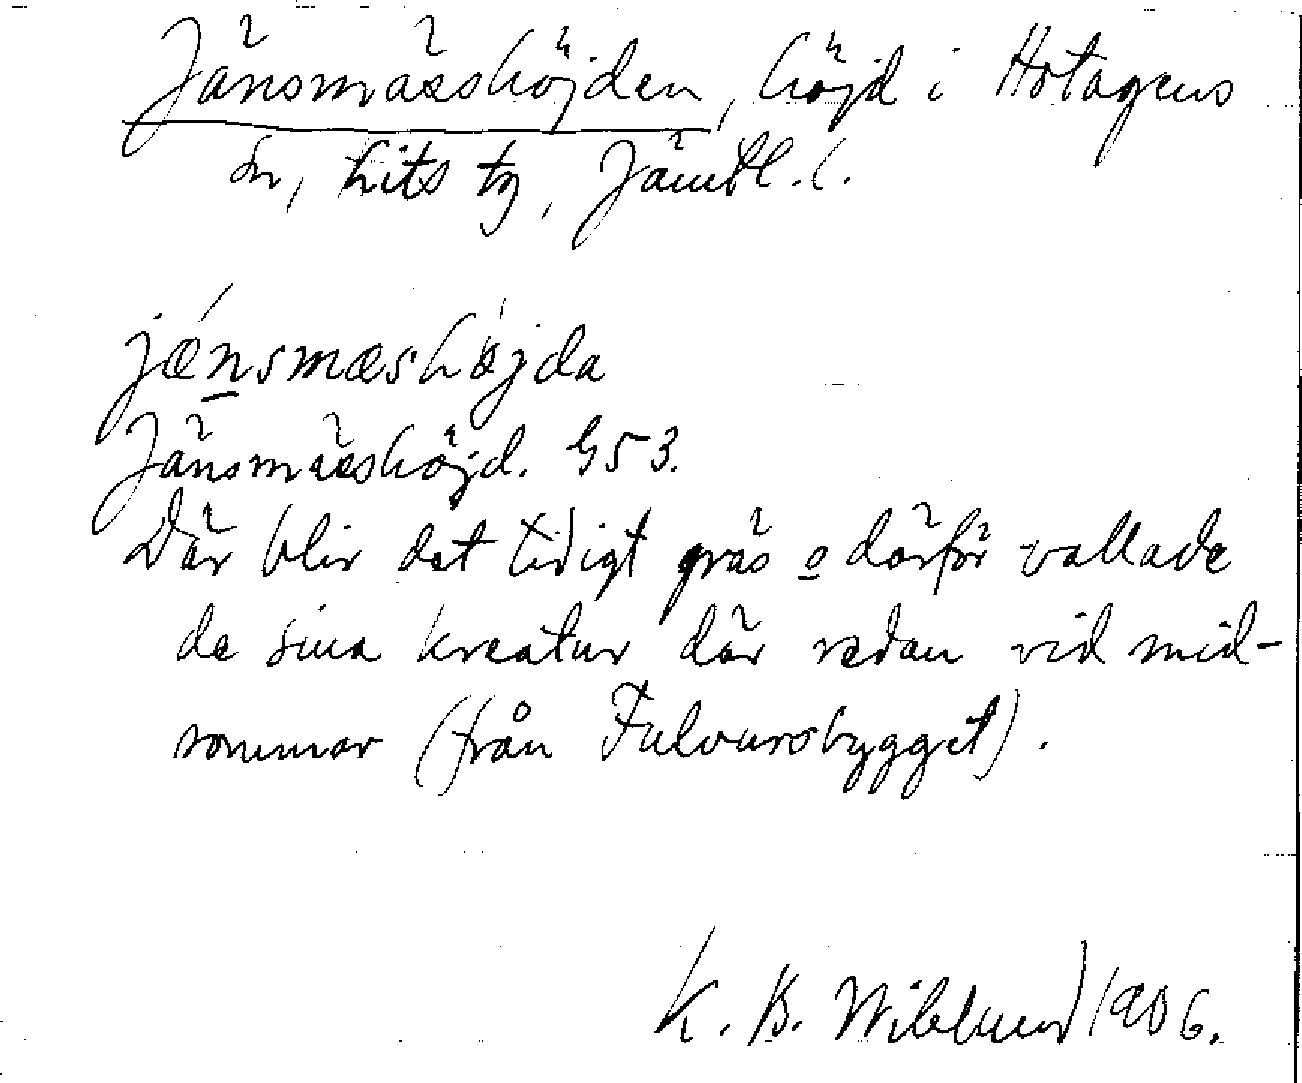 Jänsmässhöjden, höjd i Hotagens
sn, Lits tg, Jämtl. l.
jænsmæshöjda
Jänsmässhöjd. G53.
Där blir det tidigt gräs o därför vallade
de sina kreatur där redan vid mid-
sommar (från Fulvursbygget).
K. B. Wiklund 1906.